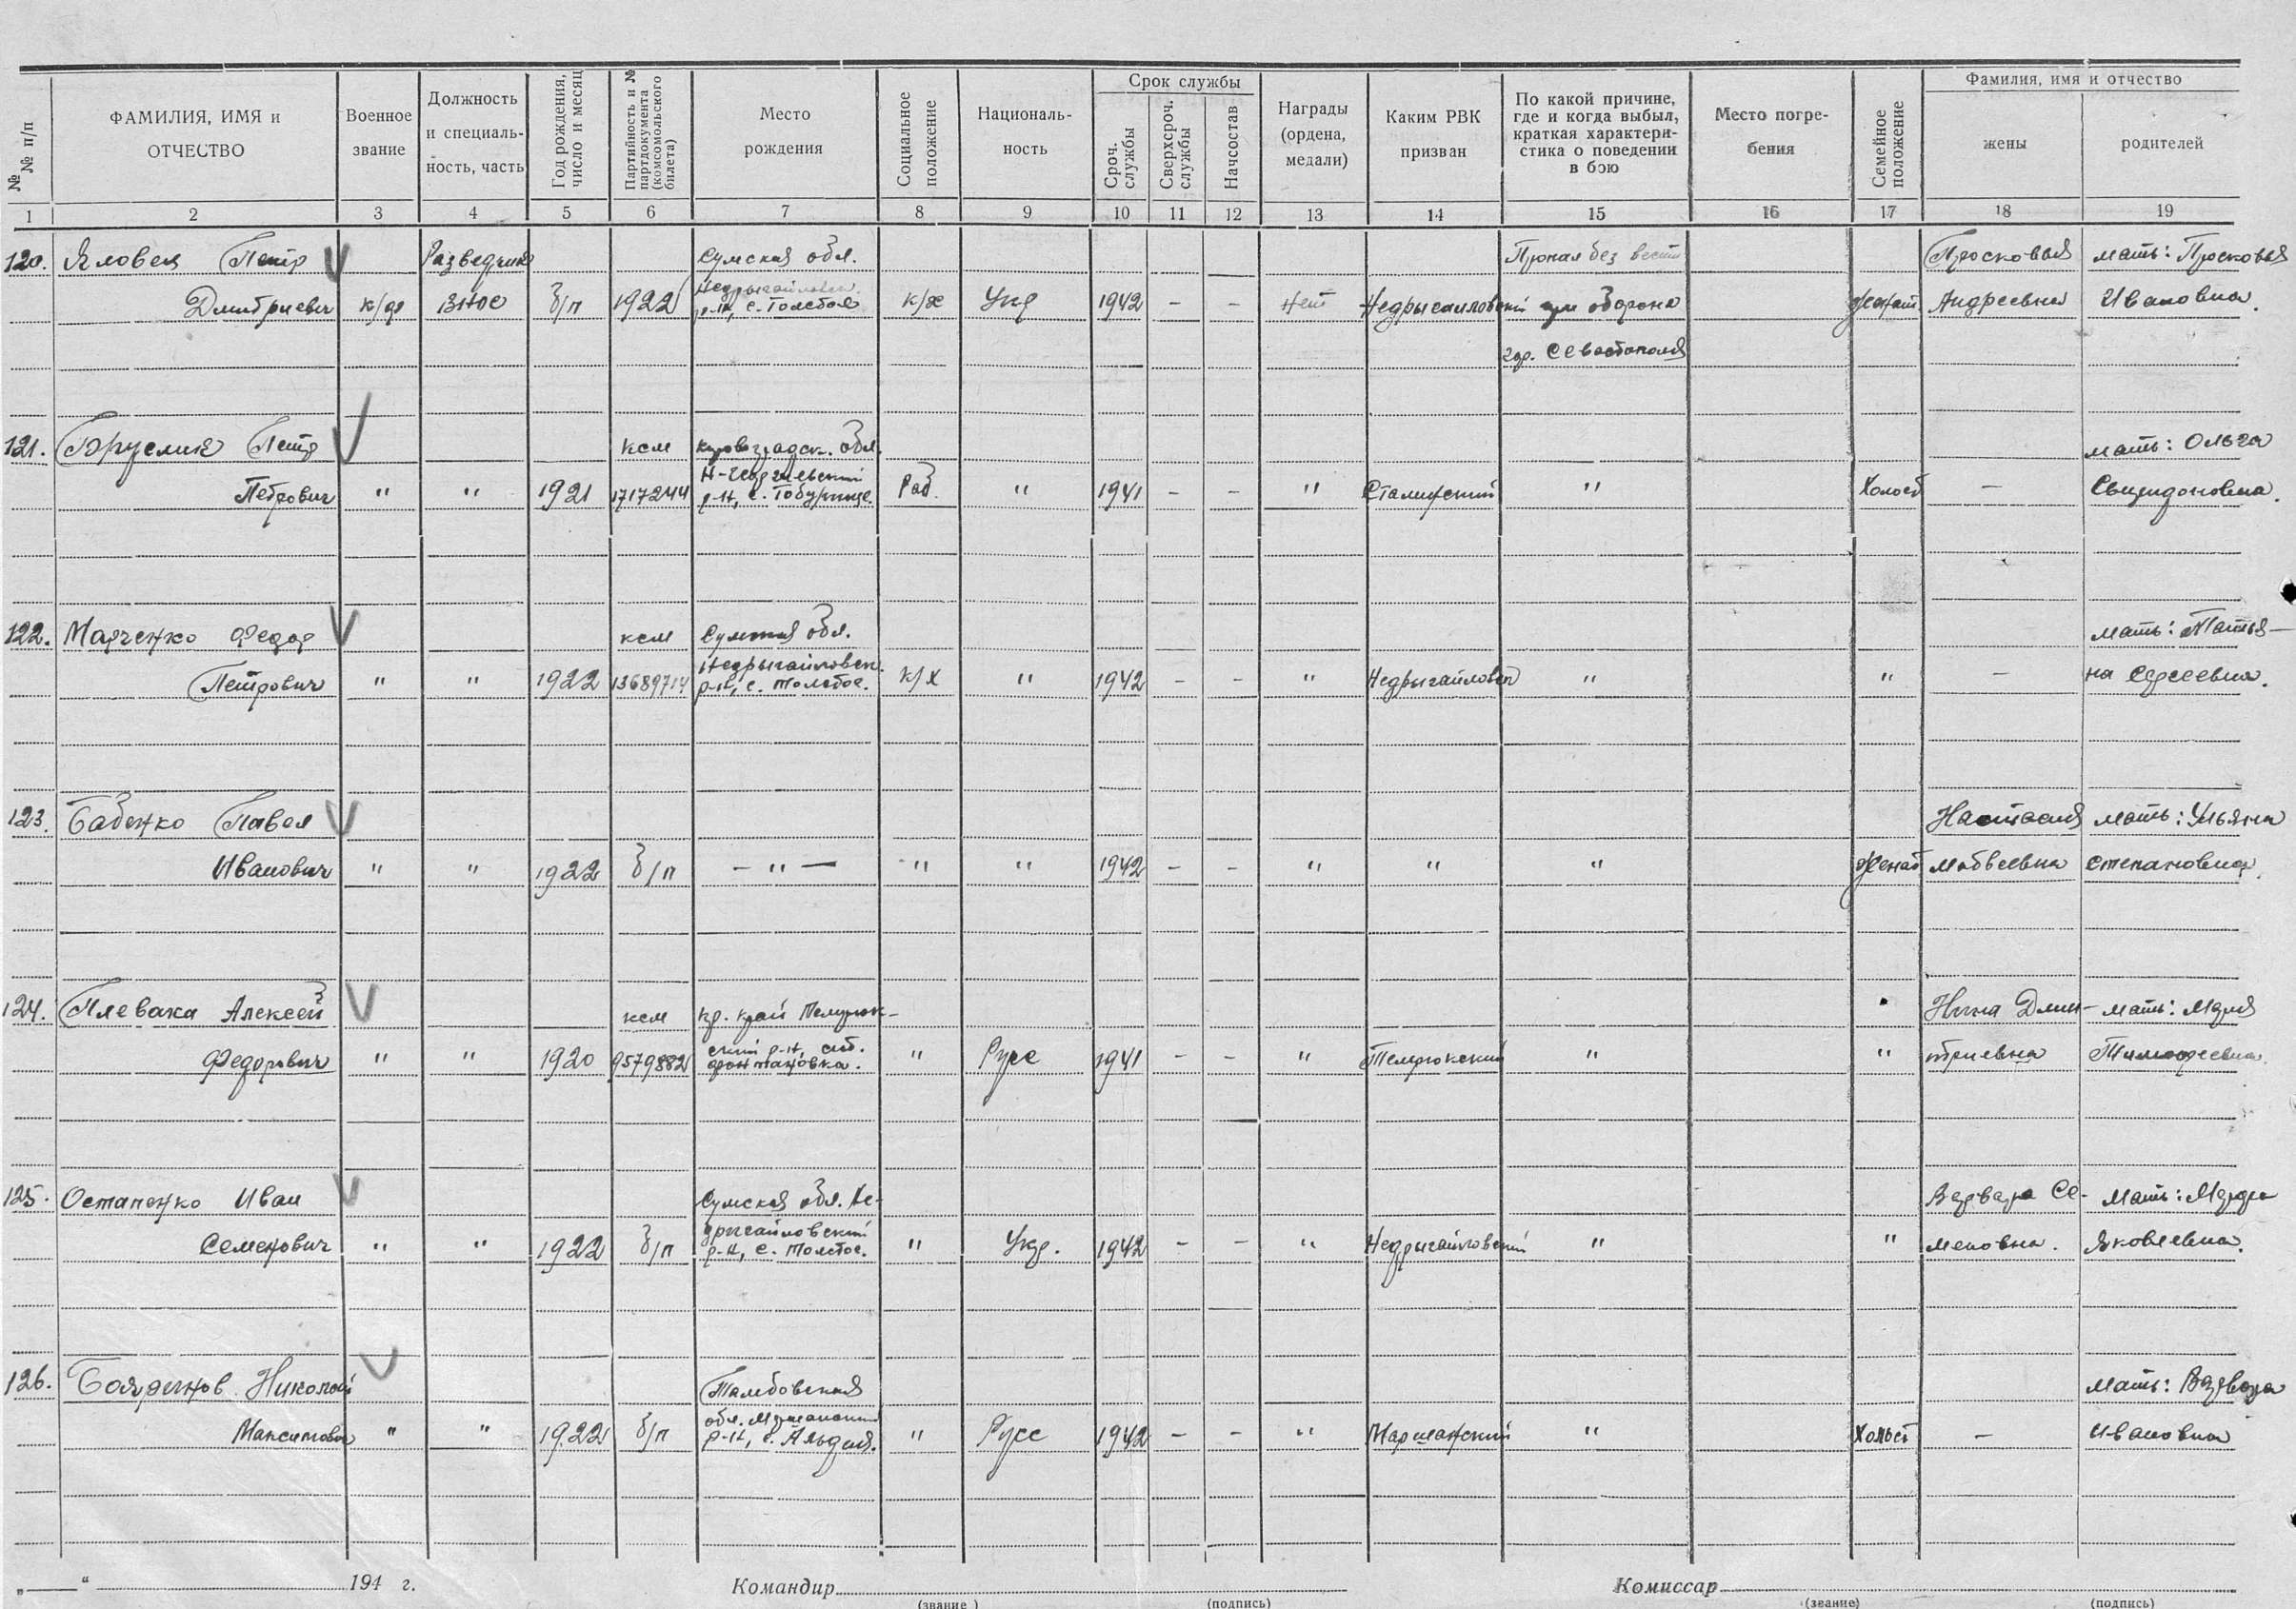 №№ п/п
ФАМИЛИЯ, ИМЯ и ОТЧЕСТВО
Военное звание
Должность и специаль-ность, часть
Год рождения, число и месяц
Партийность и № партдокумента (комсомольского билета)
Место рождения
Социальное положение
Националь-ность
Срок службы
Сроч. службы
Сверхсроч. службы
Начсостав
Награды (ордена, медали)
Каким РВК призван
По какой причине, где и когда выбыл, краткая характери-стика о поведении в бою
Место погре-бения
Семейное положение
Фамилия, имя и отчество
жены
родителей
1 2 3 4 5 6 7 8 9 10 11 12 13 14 15 16 17 18 19
120. Яловец Петр Разведчик Сумская обл. Пропал без вести Просковья мать: Просковья
Дмитриевич к/ф взвод б/п 1922 Недрыгайловск. р-н, с. Толстое к/х Укр 1942 – – Нет Недрыгайловский при обороне женат Андреевна Ивановна.
гор. Севастополя
121. Петр ксм Кировоградск. обл. мать: Ольга
Петрович " " 1921 1717244 Н-Георгиевский р-н, с. Раб. " 1941 – – " Сталинский " Холост –
122. Марченко Федор ксм Сумская обл. мать: Татья-
Петрович " " 1922 13689714 Недрыгайловск. р-н, с. Толстое. к/х " 1942 – – " Недрыгайловск " " – на Сергеевна.
123. Бабенко Павел Настасия мать: Ульяна
Иванович " " 1922 б/п – " – " " 1942 – – " " " Женат Матвеевна Степановна.
124. Плевака Алексей ксм Кр. край Темрюк- Нина Дмит- мать: Мария
Федорович " " 1920 9579882 ский р-н, ст. Фонталовка. " Русс 1941 – – " Темрюкский " " триевна Тимофеевна.
125. Остапенко Иван Сумская обл. Не- Варвара Се- мать: Марфа
Семенович " " 1922 б/п дрыгайловский р-н, с. Толстое. " Укр. 1942 – – " Недрыгайловский " " меновна. Яковлевна.
126. Бояринов Николай Тамбовская мать: Варвара
Максимович " " 1922 б/п обл. Моршанский р-н, с. " Русс 1942 – – " Моршанский " Холост – Ивановна
„ “ 194 г. Командир Комиссар
(звание) (подпись) (звание) (подпись)